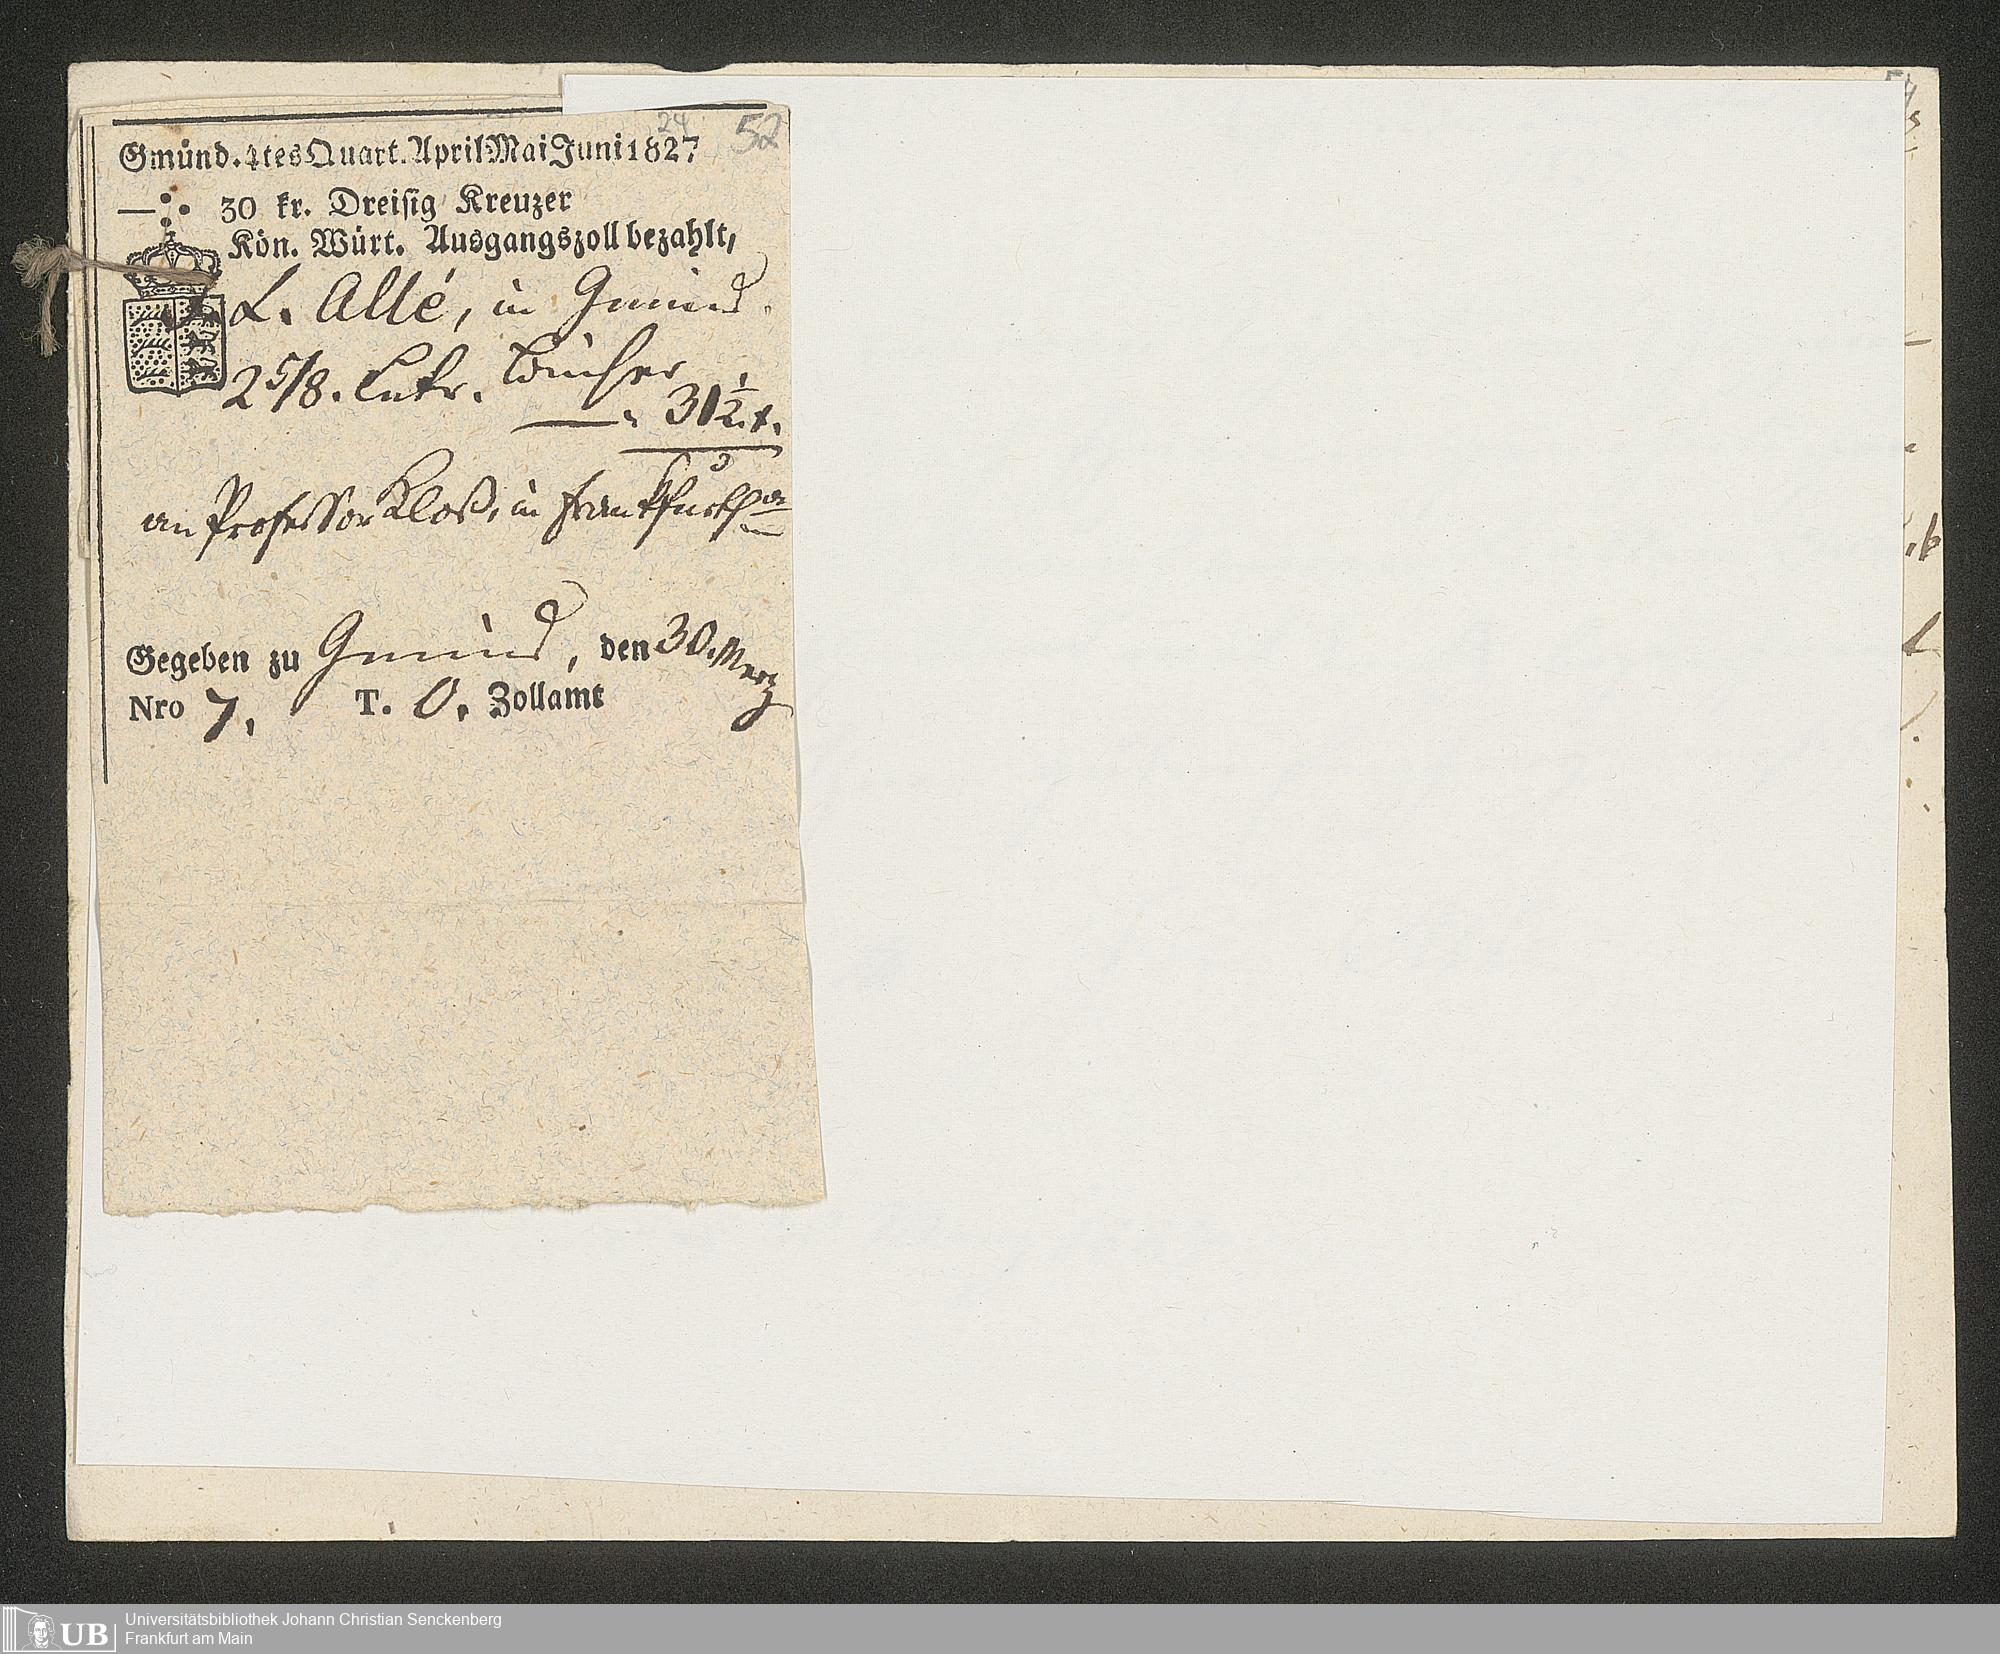 24
52
Gmünd. 4tes Quart. April Mai Juni 1827
— 30 kr. Dreisig Kreuzer
Kön. Würt. Ausgangszoll bezahlt,
L. Allé, in Gmünd.
2 5/8. Cntr. Bücher
— " 31 1/2 x.
an Professor Kloß, in Frankfurth a/m
Gegeben zu Gmünd, den 30. Merz
Nro 7. T. O. Zollamt
UB
Universitätsbibliothek Johann Christian Senckenberg
Frankfurt am Main